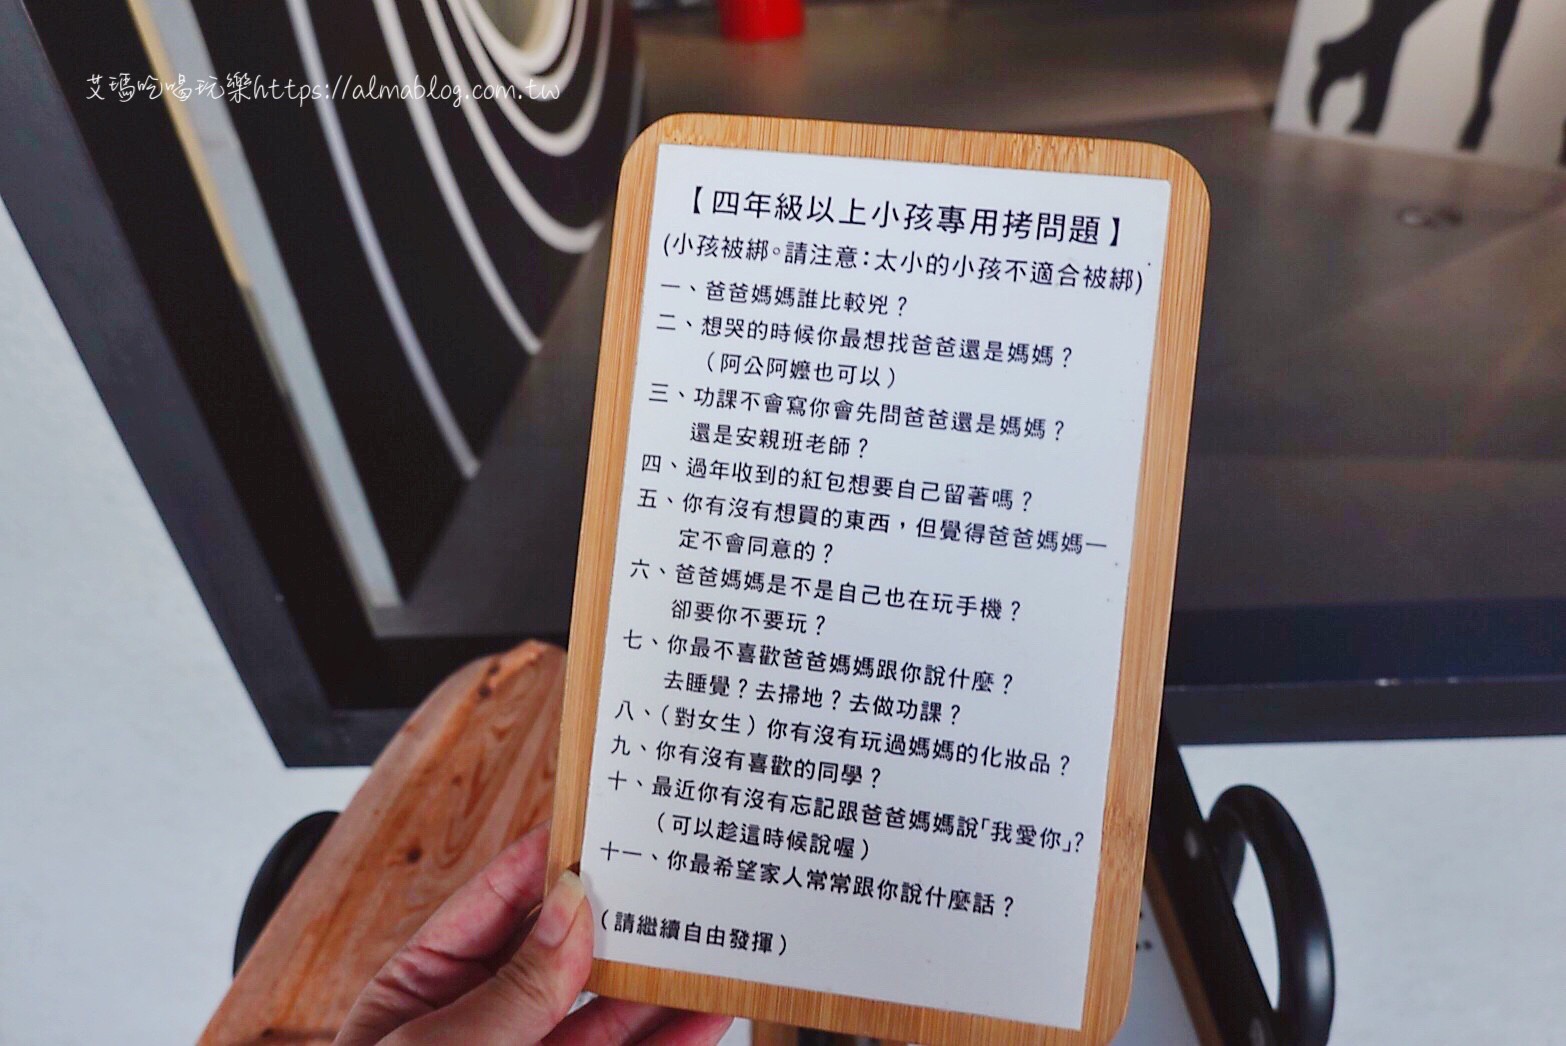 艾瑪吃喝玩樂https://almablog.com.tw
【四年級以上小孩專用拷問題】
(小孩被綁。請注意：太小的小孩不適合被綁)
一、爸爸媽媽誰比較兇？
二、想哭的時候你最想找爸爸還是媽媽？
（阿公阿嬤也可以）
三、功課不會寫你會先問爸爸還是媽媽？
還是安親班老師？
四、過年收到的紅包想要自己留著嗎？
五、你有沒有想買的東西，但覺得爸爸媽媽一
定不會同意的？
六、爸爸媽媽是不是自己也在玩手機？
卻要你不要玩？
七、你最不喜歡爸爸媽媽跟你說什麼？
去睡覺？去掃地？去做功課？
八、（對女生）你有沒有玩過媽媽的化妝品？
九、你有沒有喜歡的同學？
十、最近你有沒有忘記跟爸爸媽媽說「我愛你」？
（可以趁這時候說喔）
十一、你最希望家人常常跟你說什麼話？
（請繼續自由發揮）